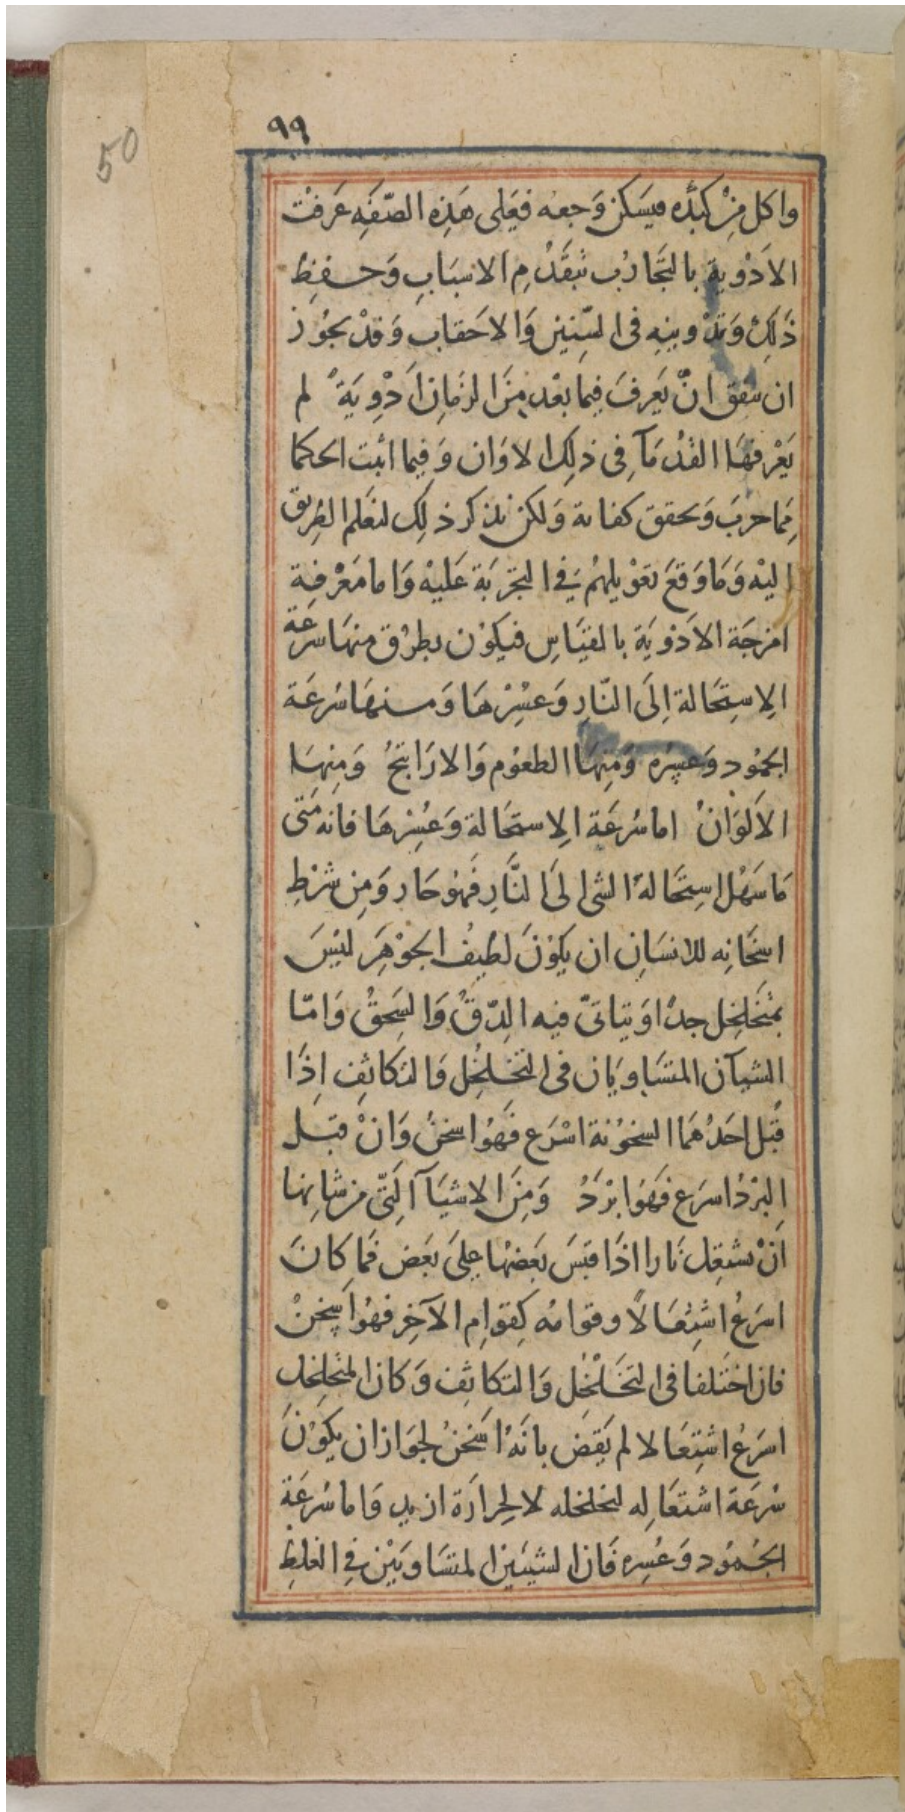 ٩٩
50
واكل مِنْ كبدُه فيسَكن وَجعه فعَلى هَذِه الصّفَه عَرفتْ
الاَدْوية بالتجَاربْ بتقَدْمِ الاسبَابِ وَحفظِ
ذَلِكْ وَتدْوينِه فى السّنِين وَالاحقاب وَقدْ يجُوز
ان يتفق انْ يَعرفَ فِيما بعْد مِنَ الزمَانِ اَدْوِيَةً لم
يَعْرفهَا القدُمَآ فِى ذلِكَ الاوَان وَفيما اثبت الحكما
مِمّا جربَ وَتحقق كفاية وَلكن نذكر ذلِك لنعَلم الطريق
اليْه وَمَا وَقعَ تعَوْيلهُم فِى التجّربَة عَليْه وَاما مَعْرفة
امْزجَة الاَدْويَة بالقيَاسِ فيَكوُن بطرُق منهَا سُرعَة
الاِستِحَالة اِلَى النّارِ وَعسُرْهَا وَمنهَا سُرعَة
الجمُود وَعسُره وَمِنهَا الطعوُم وَالارَايحُ وَمِنهَا
الاَلوَانُ اما سُرعَة الاِستحَالة وَعُسْرهَا فانه مَتى
مَا سَهُل استِحَالة الشى الَى النَّارِ فَهوُ حَار وَمِن شرْطِ
اسخَانِه للانسَانِ ان يكوُنَ لطِيفُ الجوْهَرِ ليْسَ
بمتخَلخِل جدًا وَيتاتىّ فيه الدّقُ وَالسَحِقُ وَامّا
الشيآن المتسَاويَان فى التخَلخُل وَالتكاثِف اِذَا
قبُل احَدُهَما السخوُنة اسْرَع فَهُوا سخنُ وَانْ قبَل
البرْدُ اسرَع فهَوَا برَدُ وَمِنَ الاشيَآ الَتّى مِن شانِها
اَنْ تشتعِل نَارا اذَا قبَسَ بَعضهُا عِلىَ بَعض فَما كانَ
اسرَعُ اشتِعَالًا وقوامُه كِقوامِ الآخِر فهُوَا سِخنْ
فان اختَلفا فى التخَلْخُل وَالتكاثِف وَكان المتخلخل
اسرَعُ اشتِعَالا لم يَقض بانَهْ اسَخنُ لجوَاز ان يكوُنَ
سُرعَة اشتعَالِه لتخلخله لا لِحرارَة ازيد وَاما سُرعَة
الجُموُد وَعُسِره فَان الشيئَين المتسَاويَيْن فِى الغلظِ